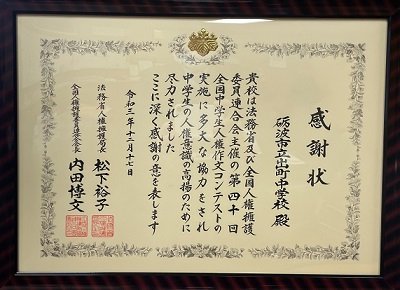 感謝状
砺波市立出町中学校 殿
貴校は法務省及び全国人権擁護
委員連合会主催の第四十回
全国中学生人権作文コンテストの
実施に多大な協力をされ
中学生の人権意識の高揚のために
尽力されました
ここに深く感謝の意を表します
令和三年十二月十七日
法務省人権擁護局長 松下裕子
全国人権擁護委員連合会会長 内田博文